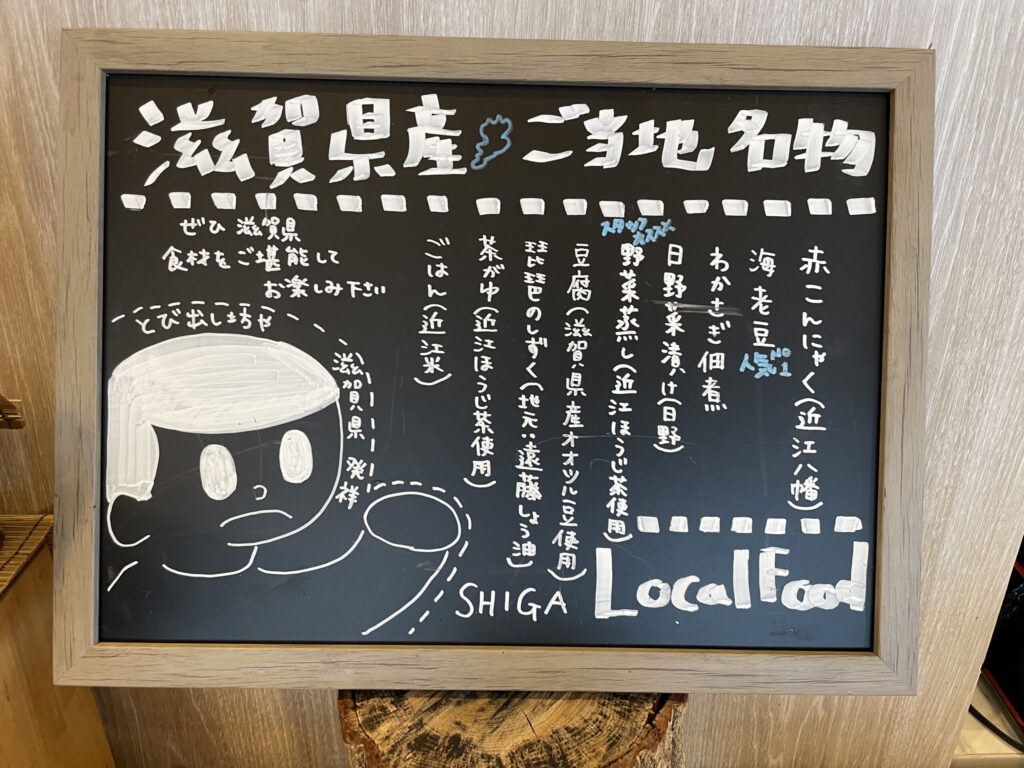 滋賀県産 ご当地名物
赤こんにゃく(近江八幡)
海老豆
人気No1
わかさぎ佃煮
日野菜漬け(日野)
スタッフオススメ
野菜蒸し(近江ほうじ茶使用)
豆腐(滋賀県産オオツル豆使用)
琵琶のしずく(地元:遠藤しょう油)
茶がゆ(近江ほうじ茶使用)
ごはん(近江米)
ぜひ 滋賀県
食材をご堪能して
お楽しみ下さい
とび出し坊や
滋賀県 発祥
SHIGA
Local Food